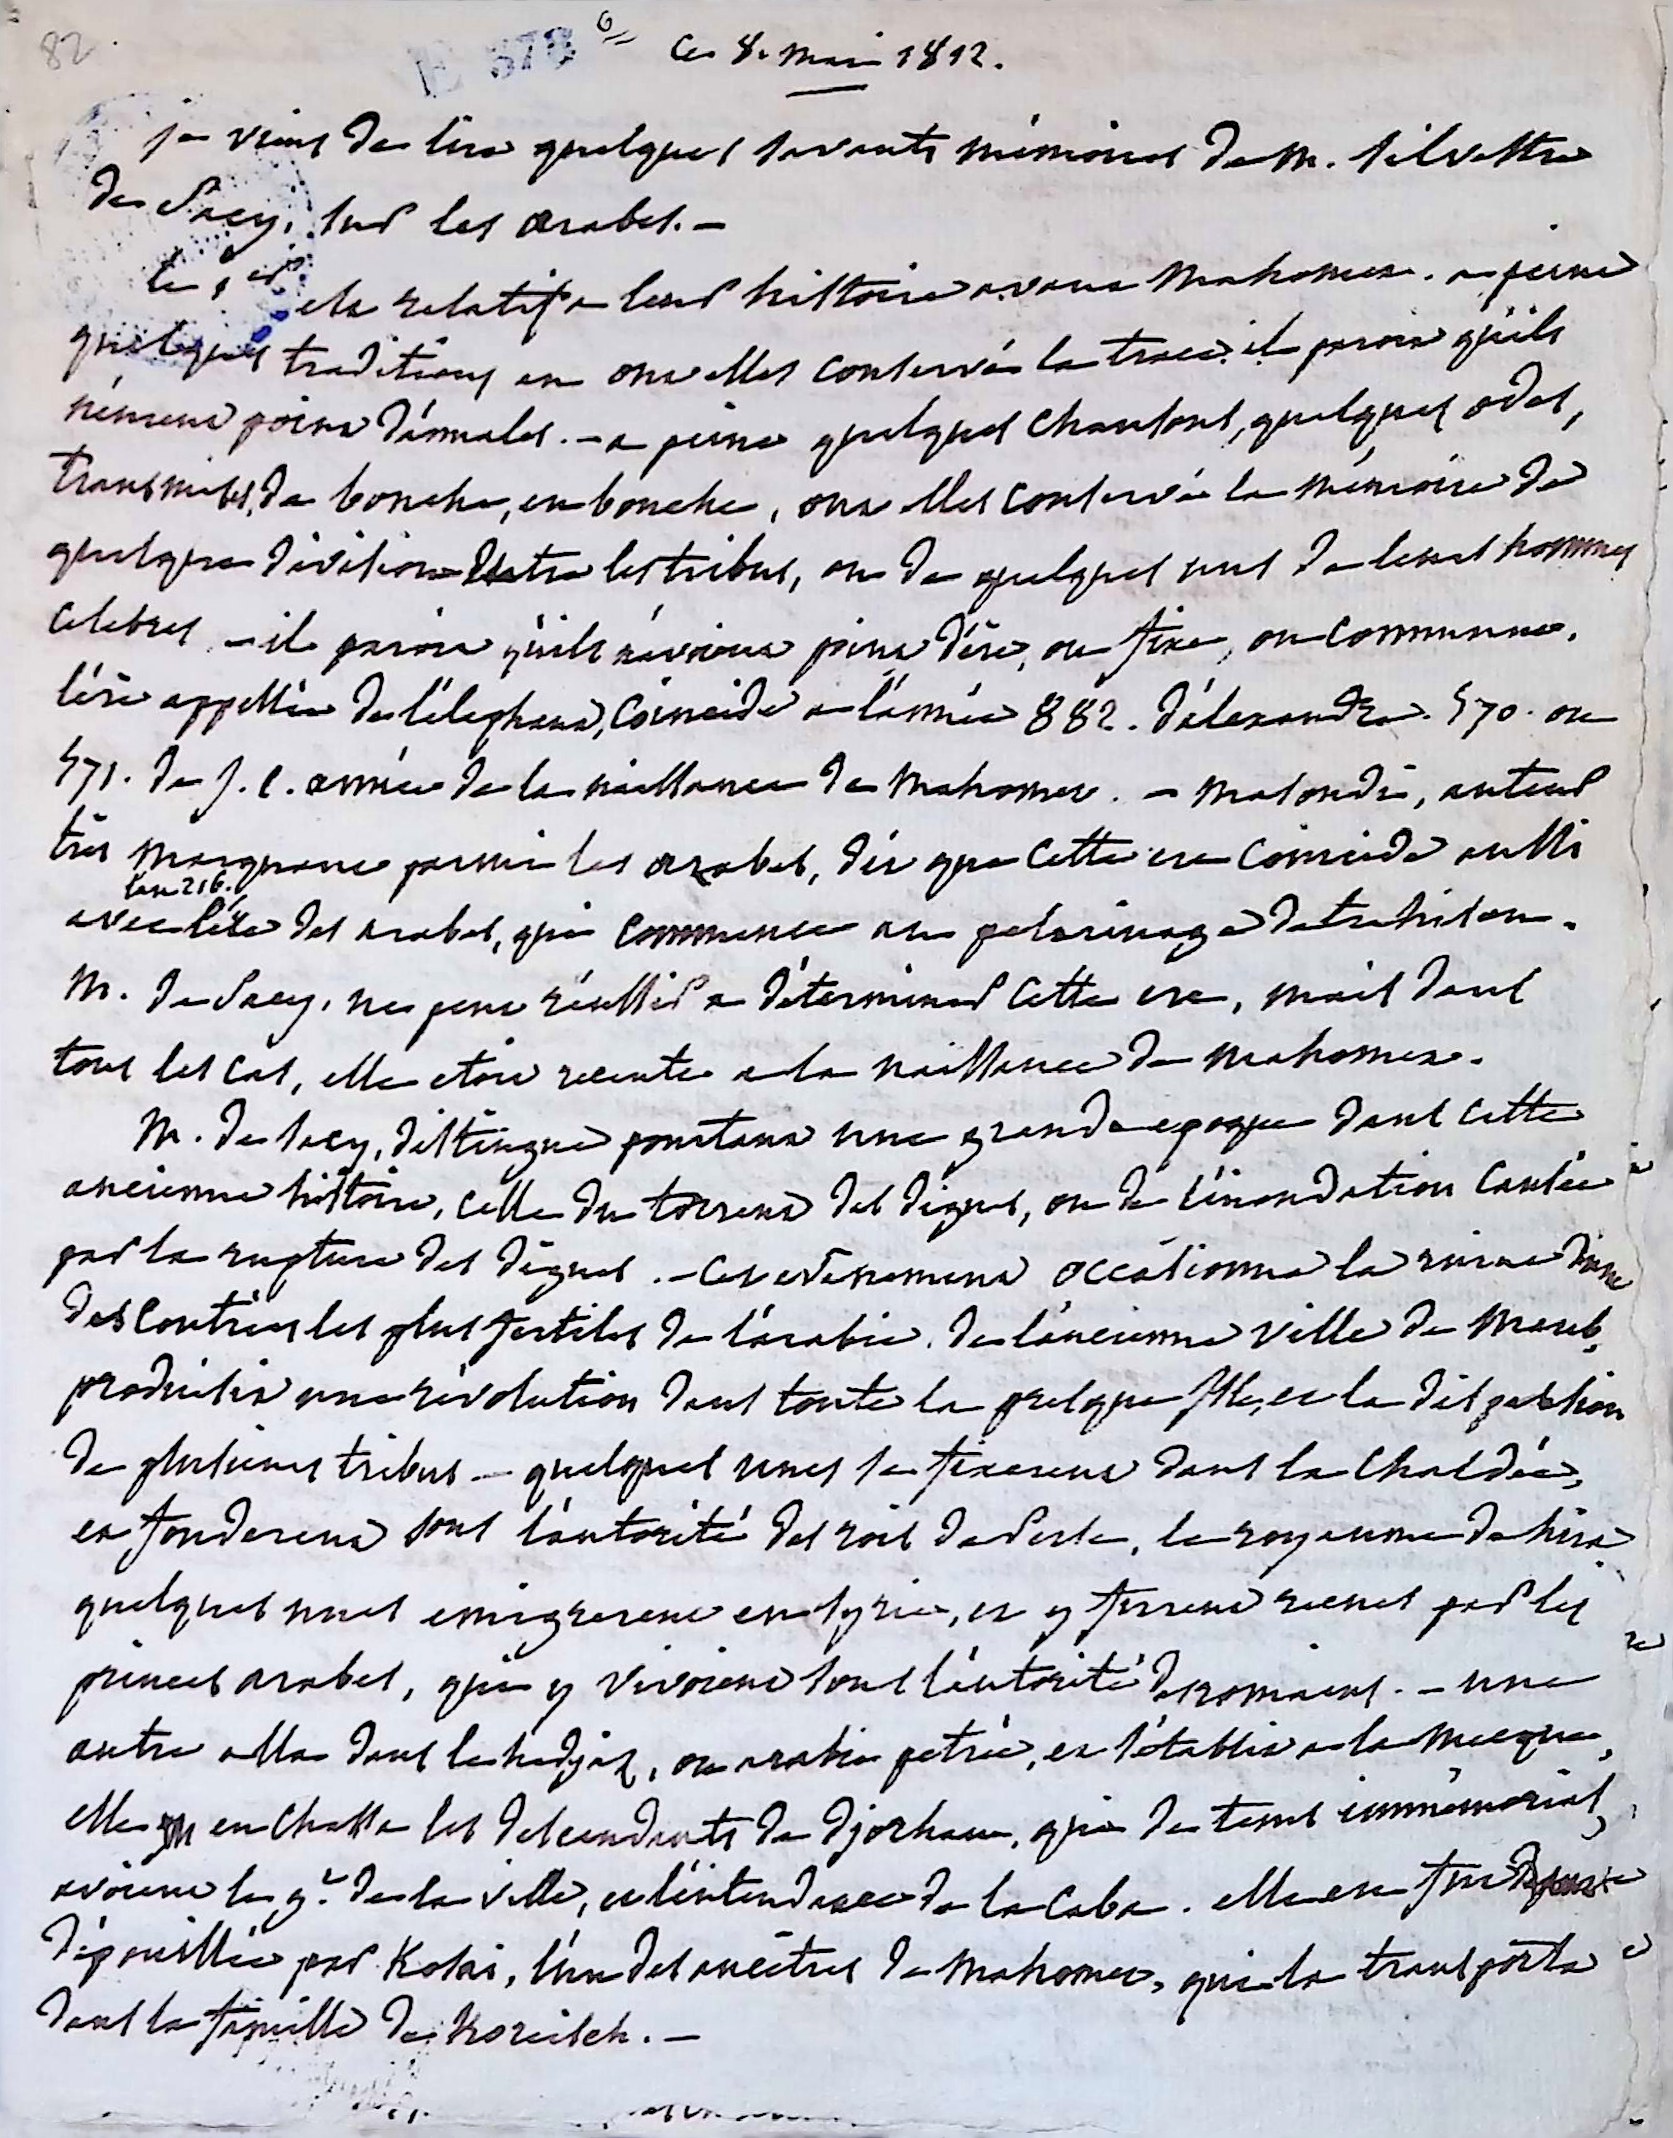 82.
E 378
6 ce 8. mai 1812.
je viens de lire quelques savants mémoires de m. silvestre
de Sacy, sur les arabes. —
le 1er est relatif a leur histoire avant mahomet. a peine
quelques traditions en ont elles conservé la trace. il paroit qu'ils
n'eurent point d'annales. — a peine quelques chansons, quelques odes,
transmises, de bouche, en bouche, ont elles conservé la mémoire de
quelque division entre les tribus, ou de quelques uns de leurs hommes
celebres — il paroit qu'ils n'avoient point d'ére, ou fixe, ou commune.
l'ére appellée de l'élephant, coïncide a l'année 882. d'alexandre. 570. ou
571. de j. c. année de la naissance de mahomet. — masoudi, auteur
très marquant parmi les arabes, dit que cette ere coïncide aussi
l'an 216.
avec l'ére des arabes, qui commence au pelerinage de trahison.
M. de Sacy, ne peut réussir a déterminer cette ere, mais dans
tous les cas, elle etoit recente a la naissance de mahomet.
M. de Sacy, distingue pourtant une grande epoque dans cette
ancienne histoire, celle du torrent des digues, ou de l'inondation causée
par la rupture des digues. — cet evenement occasionna la ruine d'une
des contrées les plus fertiles de l'arabie. de l'ancienne ville de Mareb,
produisit une révolution dans toute la presque isle, et la dispersion
de plusieurs tribus — quelques unes se fixerent dans la Chaldée,
et fonderent sous l'autorité des rois de Perse, le royaume de hira
quelques unes emigrerent en syrie, et y furent recues par les
princes arabes, qui y vivoient sous l'autorité des romains. — une
autre alla dans le hedjaz, ou arabie petrée, et s'établit a la mecque,
elle en chassa les descendants de djorham, qui de tems immémorial,
avoient le gt. de la ville, et l'intendance de la Caba. elle en fut
dépouillée par Kosai, l'un des ancêtres de mahomet, qui la transporta
dans la famille de Koreisch. —